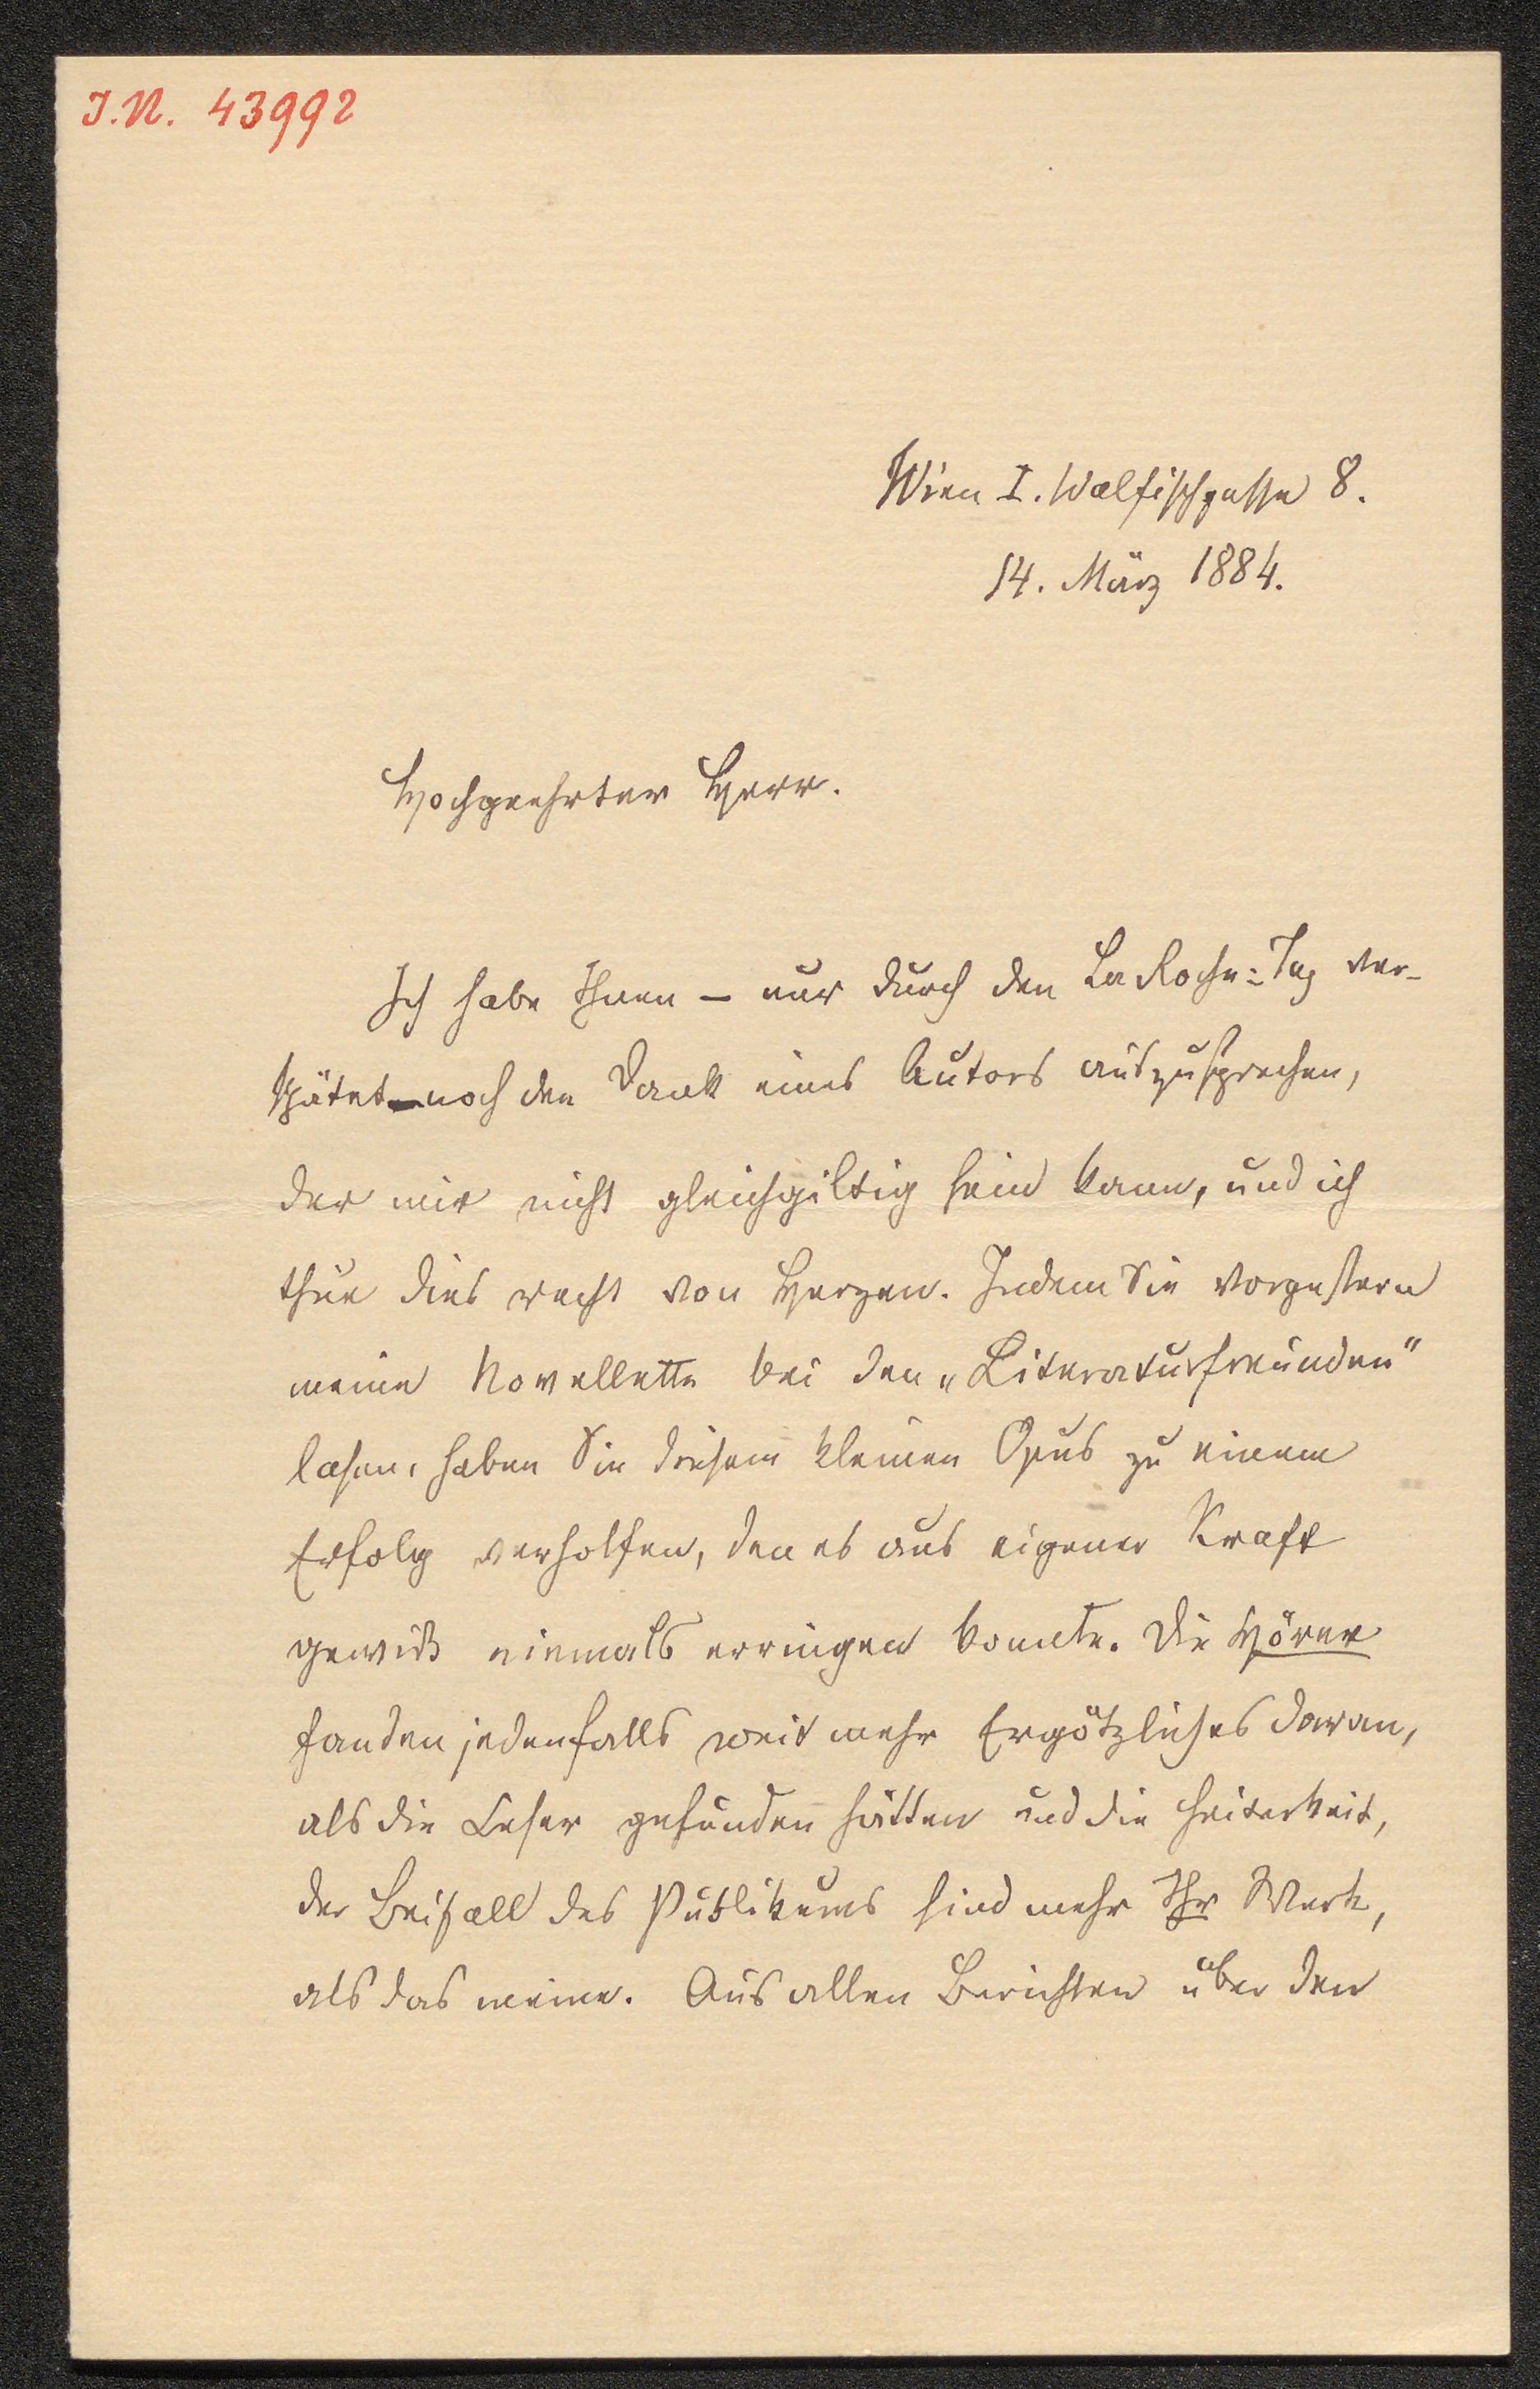 I.N. 43992
Wien I. Walfischgasse 8.
14. März 1884.
Hochgeehrter Herr.
Ich habe Ihnen – nur durch den La Roche-Tag ver-
spätet – noch den Dank eines Autors auszusprechen,
der mir nicht gleichgiltig sein kann, und ich
thue dies recht von Herzen. Indem Sie vorgestern
meine Novellette bei den „Literaturfreunden"
lasen, haben Sie diesem kleinen Opus zu einem
Erfolg verholfen, den es aus eigener Kraft
gewiß niemals erringen konnte. Die Hörer
fanden jedenfalls weit mehr Ergötzliches daran,
als die Leser gefunden hätten und die Heiterkeit,
der Beifall des Publikums sind mehr Ihr Werk,
als das meine. Aus allen Berichten über den